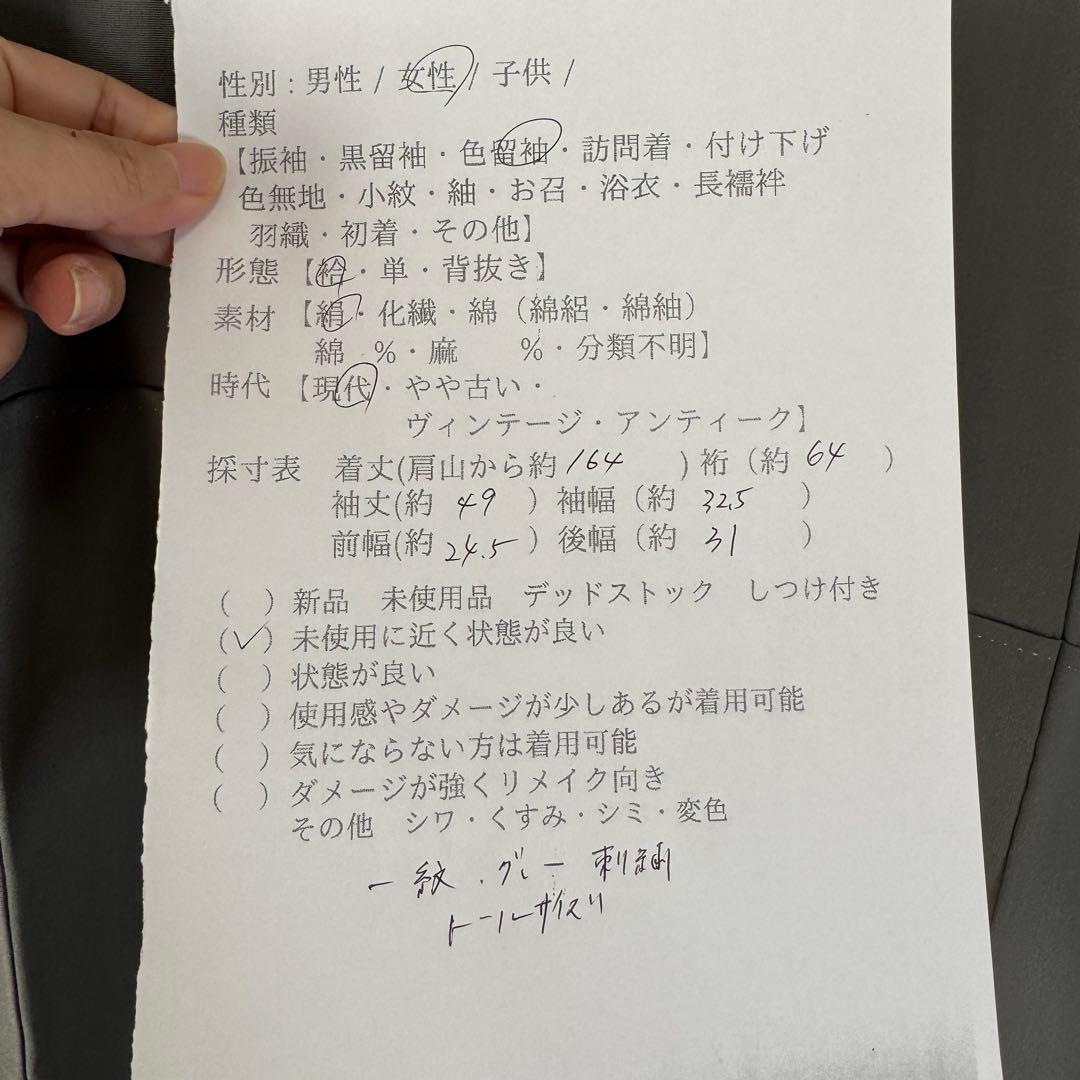 性別：男性 / 女性 / 子供 /
種類
【振袖・黒留袖・色留袖・訪問着・付け下げ
色無地・小紋・紬・お召・浴衣・長襦袢
羽織・初着・その他】
形態【袷・単・背抜き】
素材【絹・化繊・綿（綿絽・綿紬）
綿　％・麻　　％・分類不明】
時代【現代・やや古い・
ヴィンテージ・アンティーク】
採寸表　着丈(肩山から約 164 ) 裄（約 64 ）
袖丈(約 49 ）袖幅（約 32.5 ）
前幅(約 24.5 ）後幅（約 31 ）
(　) 新品　未使用品　デッドストック　しつけ付き
(✓) 未使用に近く状態が良い
(　) 状態が良い
(　) 使用感やダメージが少しあるが着用可能
(　) 気にならない方は着用可能
(　) ダメージが強くリメイク向き
その他　シワ・くすみ・シミ・変色
一紋 . グレー 刺繍
トールサイズ